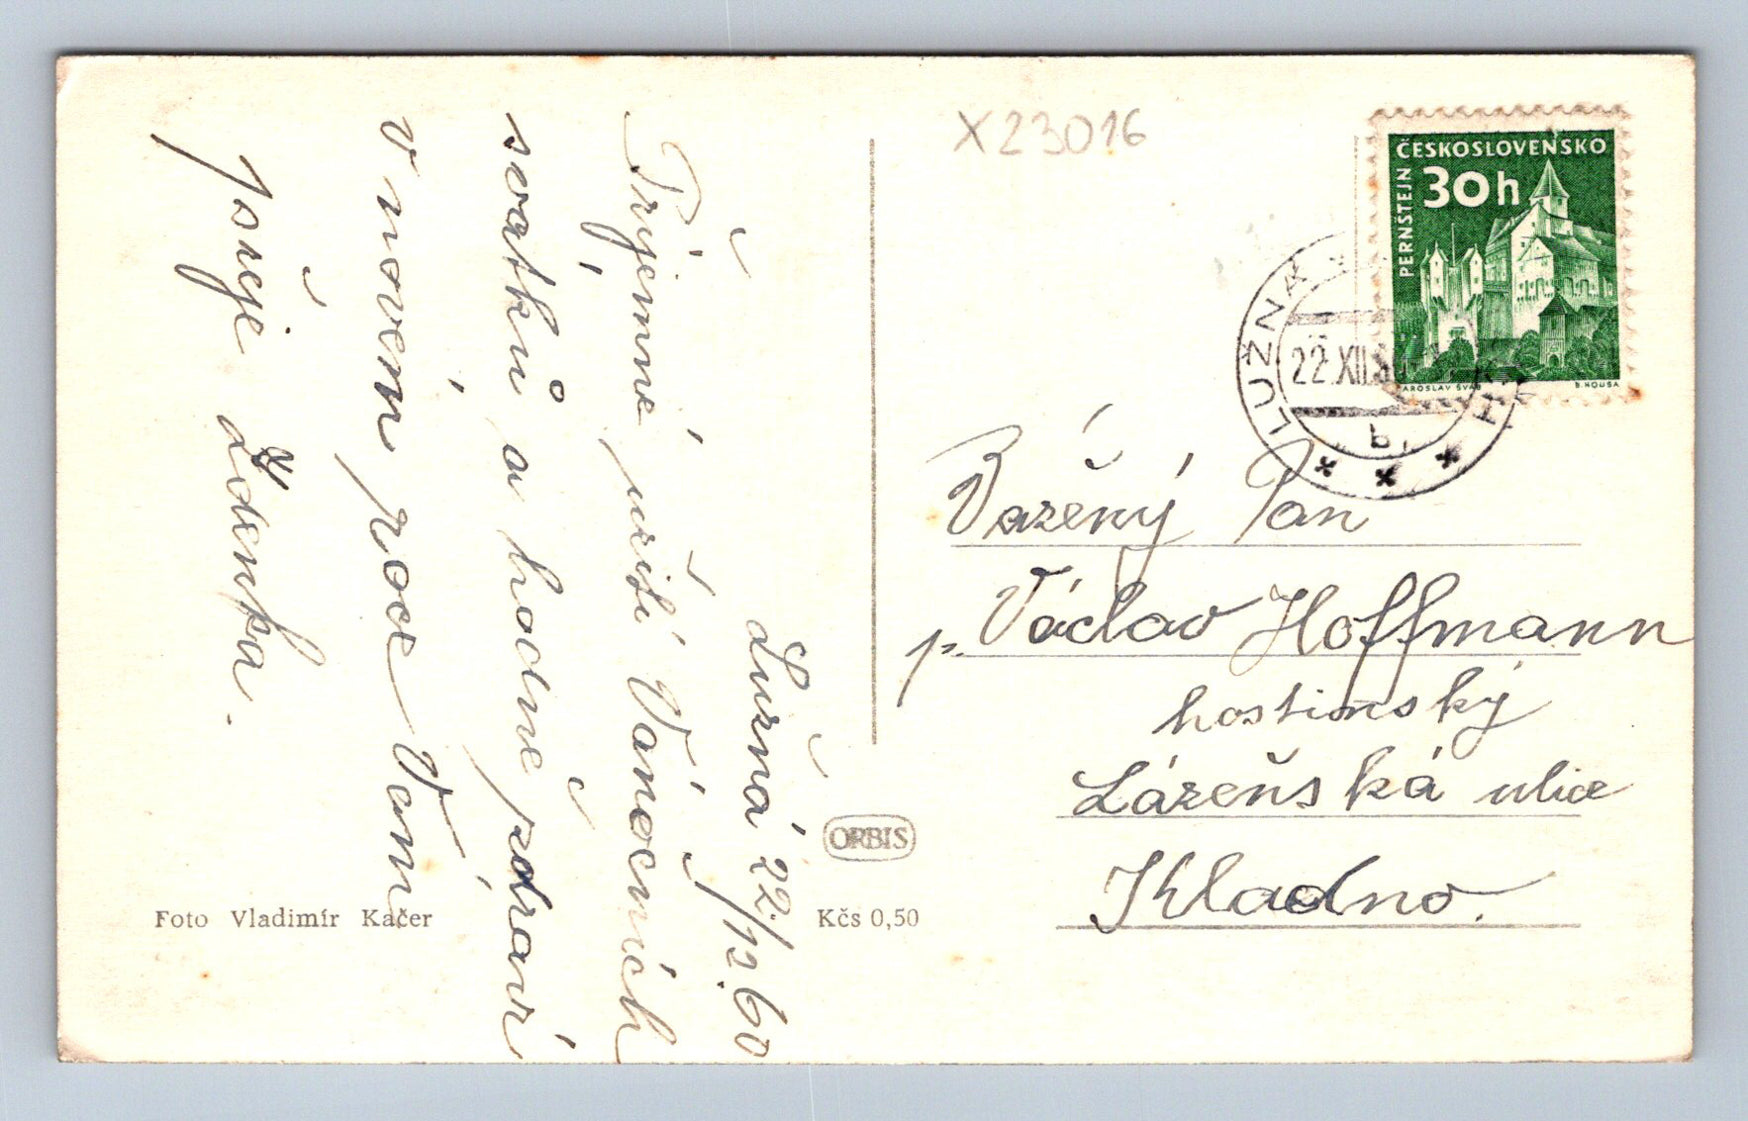 Lužná 22./12.60
Príjemné užití Vánocních
svatků a hodně zdraví
v novém roce Vám
psřeje Zdenka.
Foto Vladimír Kačer
ORBIS
Kčs 0,50
X23016
ČESKOSLOVENSKO
30h
PERNŠTEJN
JAROSLAV ŠVÁB
B. HOUSA
LUŽNÁ
22.XII.
b
Važený Pan
p. Václav Hoffmann
hostinský
Lázeňská ulice
Kladno.